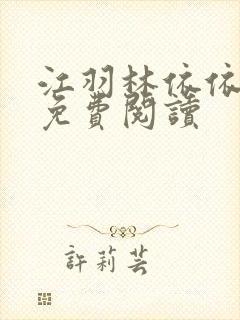 江羽林依依
免費閱讀
許莉芸